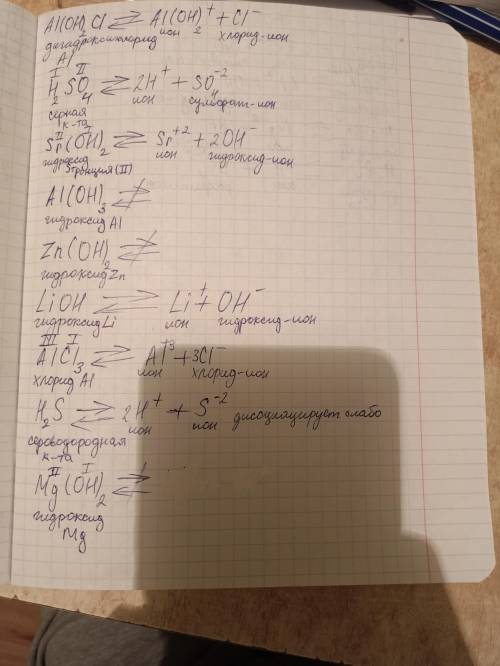 Al(OH)₂Cl ⇄ Al(OH)₂⁺ + Cl⁻
дигидроксохлорид ион хлорид-ион
Al
I II
H₂SO₄ ⇄ 2H⁺ + SO₄⁻²
серная ион сульфат-ион
к-та
II I
Sr(OH)₂ ⇄ Sr⁺² + 2OH⁻
гидроксид ион гидроксид-ион
стронция (II)
Al(OH)₃ ⇄
гидроксид Al
Zn(OH)₂ ⇄
гидроксид Zn
LiOH ⇄ Li⁺ + OH⁻
гидроксид Li ион гидроксид-ион
III I
AlCl₃ ⇄ Al⁺³ + 3Cl⁻
хлорид Al ион хлорид-ион
H₂S ⇄ 2H⁺ + S⁻² диссоциирует слабо
сероводородная ион ион
к-та
II I
Mg(OH)₂ ⇄
гидроксид
Mg